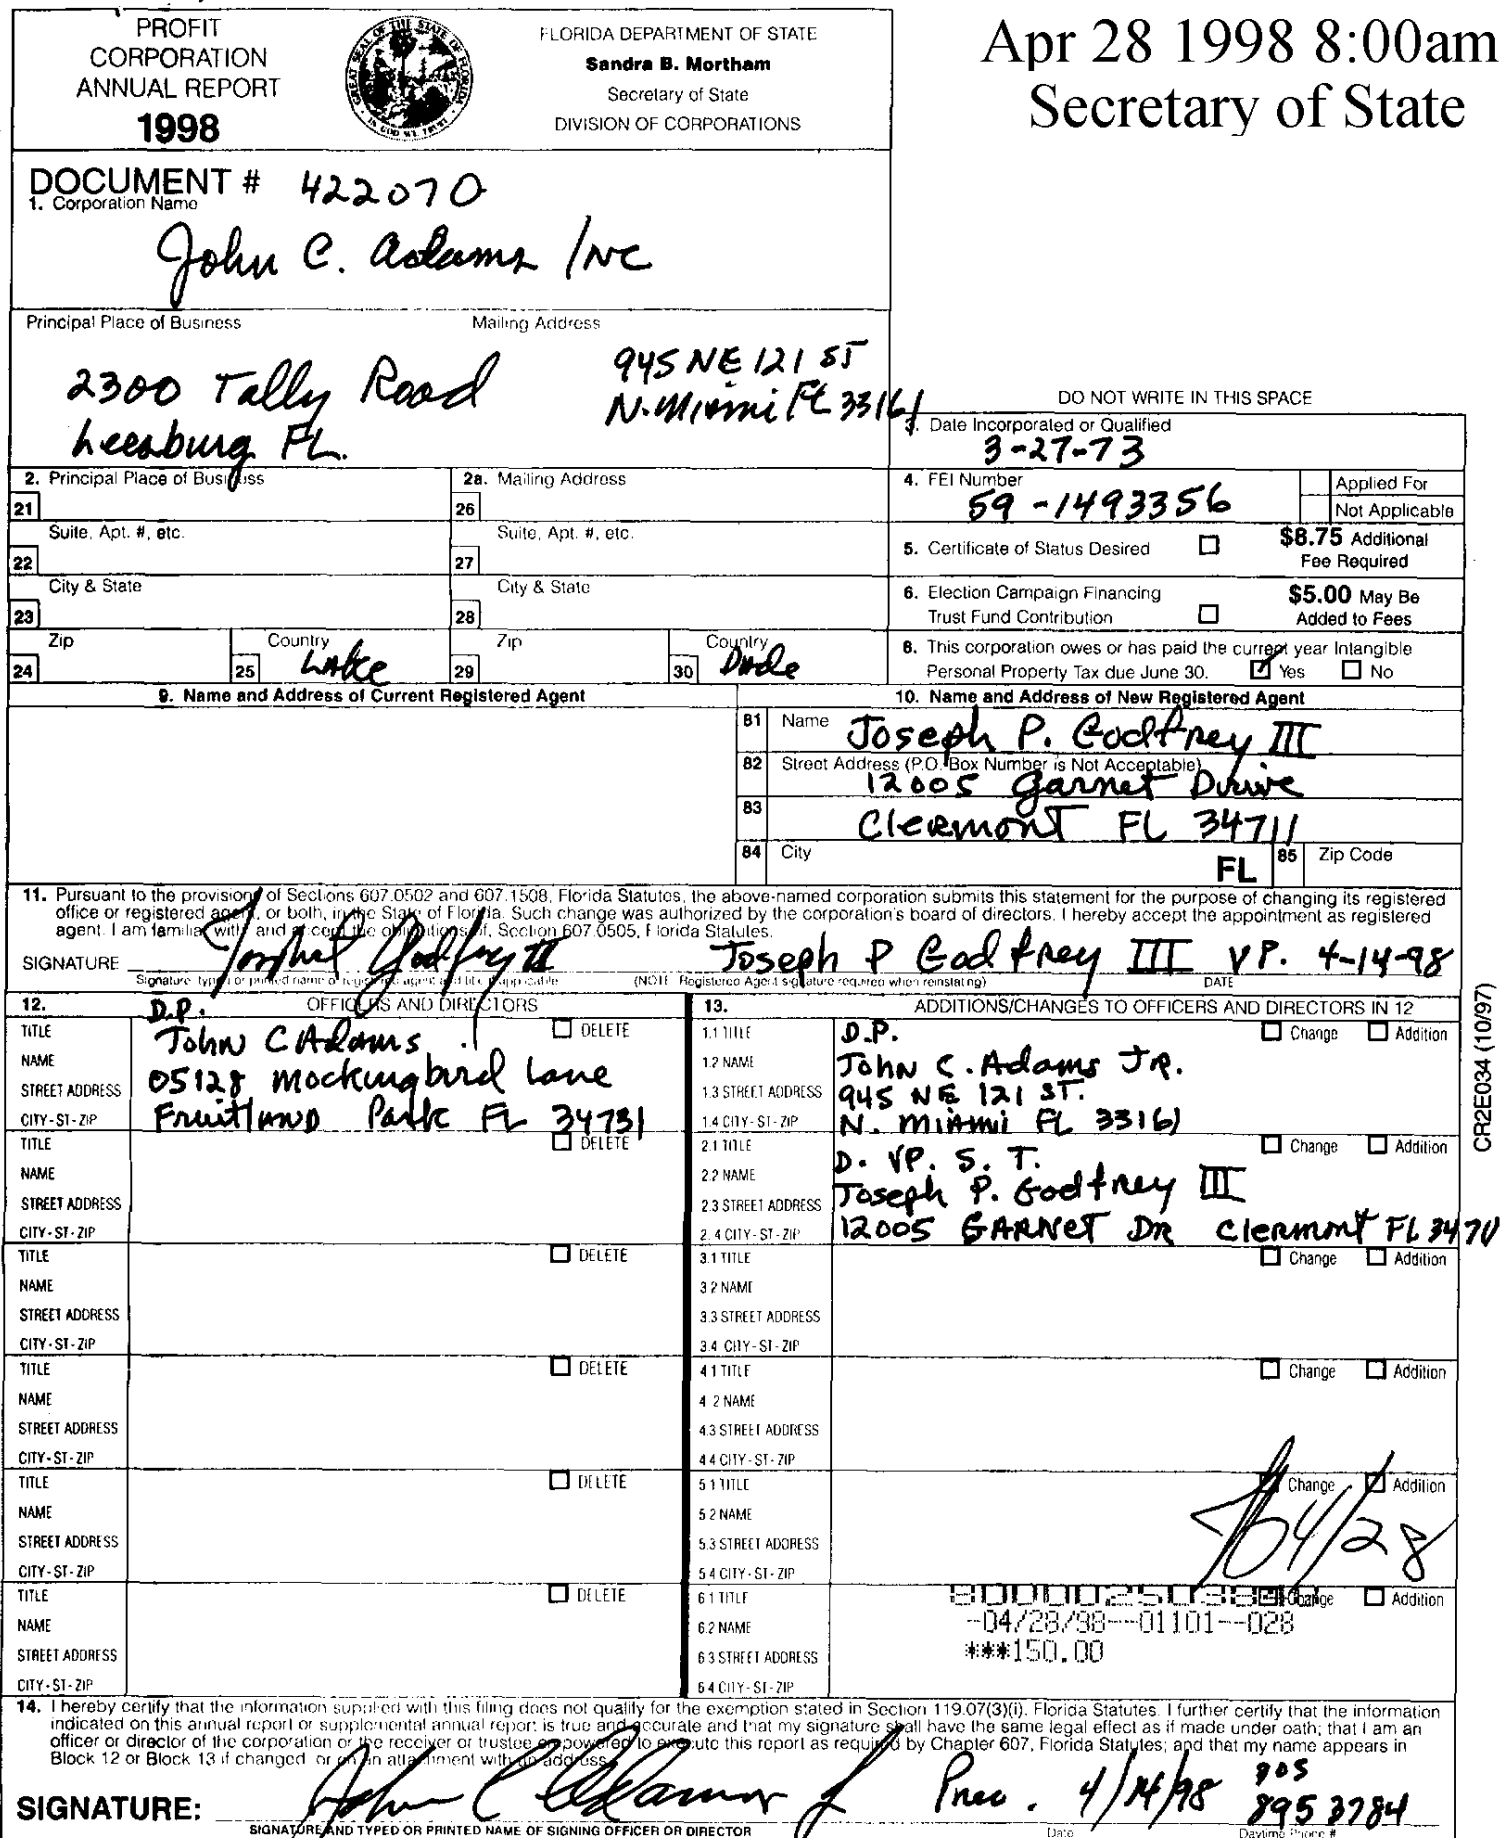 PROFIT
CORPORATION
ANNUAL REPORT
1998
GREAT SEAL OF THE STATE OF FLORIDA
IN GOD WE TRUST
FLORIDA DEPARTMENT OF STATE
Sandra B. Mortham
Secretary of State
DIVISION OF CORPORATIONS
Apr 28 1998 8:00am
Secretary of State
DOCUMENT # 422070
1. Corporation Name
John C. Adams Inc
Principal Place of Business Mailing Address
2300 Tally Road
Leesburg FL.
945 NE 121 ST
N. Miami FL 33161
DO NOT WRITE IN THIS SPACE
3. Date Incorporated or Qualified
3-27-73
2. Principal Place of Business 2a. Mailing Address
21 26
4. FEI Number
59-1493356
Applied For
Not Applicable
Suite, Apt. #, etc. Suite, Apt. #, etc.
22 27
5. Certificate of Status Desired $8.75 Additional
Fee Required
City & State City & State
23 28
6. Election Campaign Financing
Trust Fund Contribution
$5.00 May Be
Added to Fees
Zip Country Zip Country
24 25 Lake 29 30 Dade
8. This corporation owes or has paid the current year Intangible
Personal Property Tax due June 30. Yes No
9. Name and Address of Current Registered Agent
10. Name and Address of New Registered Agent
81 Name Joseph P. Godfrey III
82 Street Address (P.O. Box Number is Not Acceptable)
12005 Garnet Drive
83 Clermont FL 34711
84 City FL 85 Zip Code
11. Pursuant to the provisions of Sections 607.0502 and 607.1508, Florida Statutes, the above-named corporation submits this statement for the purpose of changing its registered
office or registered agent, or both, in the State of Florida. Such change was authorized by the corporation's board of directors. I hereby accept the appointment as registered
agent. I am familiar with, and accept the obligations of, Section 607.0505, Florida Statutes.
SIGNATURE Joseph P Godfrey III Joseph P Godfrey III VP. 4-14-98
Signature typed or printed name of registered agent and title if applicable (NOTE Registered Agent signature required when reinstating) DATE
12. OFFICERS AND DIRECTORS
TITLE D.P. DELETE
NAME John C Adams
STREET ADDRESS 05128 Mockingbird Lane
CITY-ST-ZIP Fruitland Park FL 34731
TITLE DELETE
NAME
STREET ADDRESS
CITY-ST-ZIP
TITLE DELETE
NAME
STREET ADDRESS
CITY-ST-ZIP
TITLE DELETE
NAME
STREET ADDRESS
CITY-ST-ZIP
TITLE DELETE
NAME
STREET ADDRESS
CITY-ST-ZIP
TITLE DELETE
NAME
STREET ADDRESS
CITY-ST-ZIP
13. ADDITIONS/CHANGES TO OFFICERS AND DIRECTORS IN 12
1.1 TITLE D.P. Change Addition
1.2 NAME John C. Adams JR.
1.3 STREET ADDRESS 945 NE 121 ST.
1.4 CITY-ST-ZIP N. Miami FL 33161
2.1 TITLE D. VP. S. T. Change Addition
2.2 NAME Joseph P. Godfrey III
2.3 STREET ADDRESS
2.4 CITY-ST-ZIP 12005 GARNET DR Clermont FL 34711
3.1 TITLE Change Addition
3.2 NAME
3.3 STREET ADDRESS
3.4 CITY-ST-ZIP
4.1 TITLE Change Addition
4.2 NAME
4.3 STREET ADDRESS
4.4 CITY-ST-ZIP
5.1 TITLE Change Addition
5.2 NAME
5.3 STREET ADDRESS
5.4 CITY-ST-ZIP
04/28
6.1 TITLE Change Addition
6.2 NAME -04/28/98--01101--028
6.3 STREET ADDRESS ***150.00
6.4 CITY-ST-ZIP
CR2E034 (10/97)
14. I hereby certify that the information supplied with this filing does not qualify for the exemption stated in Section 119.07(3)(i), Florida Statutes. I further certify that the information
indicated on this annual report or supplemental annual report is true and accurate and that my signature shall have the same legal effect as if made under oath; that I am an
officer or director of the corporation or the receiver or trustee empowered to execute this report as required by Chapter 607, Florida Statutes; and that my name appears in
Block 12 or Block 13 if changed, or on an attachment with an address.
SIGNATURE: John C Adams Jr Pres. 4/14/98 305
895 3784
SIGNATURE AND TYPED OR PRINTED NAME OF SIGNING OFFICER OR DIRECTOR Date Daytime Phone #